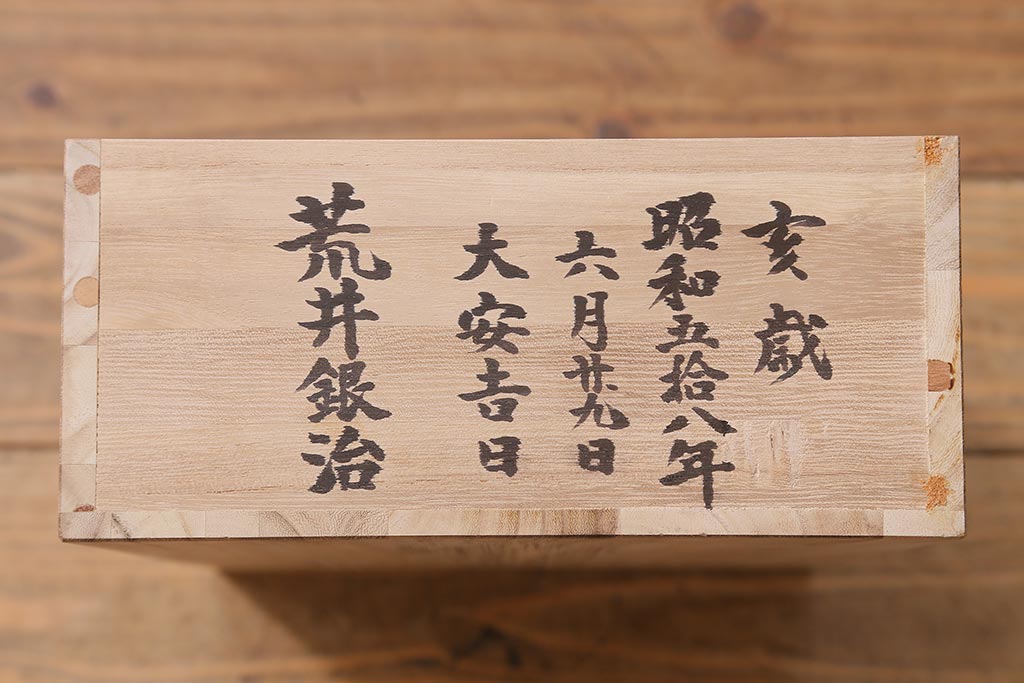 亥歳
昭和五拾八年
六月廿九日
大安吉日
荒井銀治